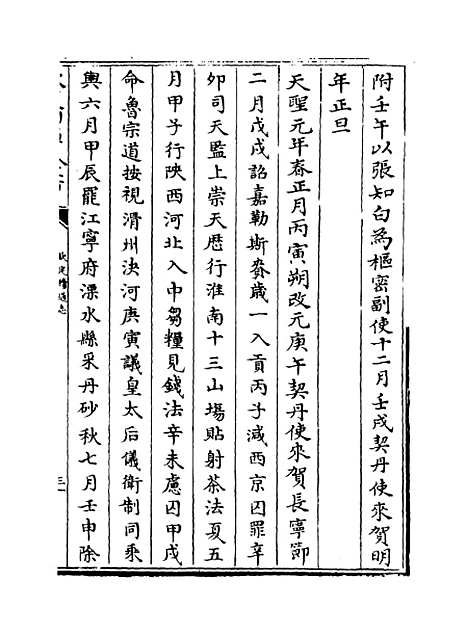 附壬午以張知白為樞密副使十二月壬戌契丹使來賀明
年正旦
天聖元年春正月丙寅朔改元庚午契丹使來賀長寧節
二月戊戌詔嘉勒斯賚歲一入貢丙子減西京囚罪辛
夘司天監上崇天歴行淮南十三山場貼射茶法夏五
月甲子行陜西河北入中芻糧見錢法辛未慮囚甲戌
命魯宗道按視滑州決河庚寅議皇太后儀衛制同乘
輿六月甲辰罷江寧府溧水縣采丹砂秋七月壬申除
欽定續通志
三